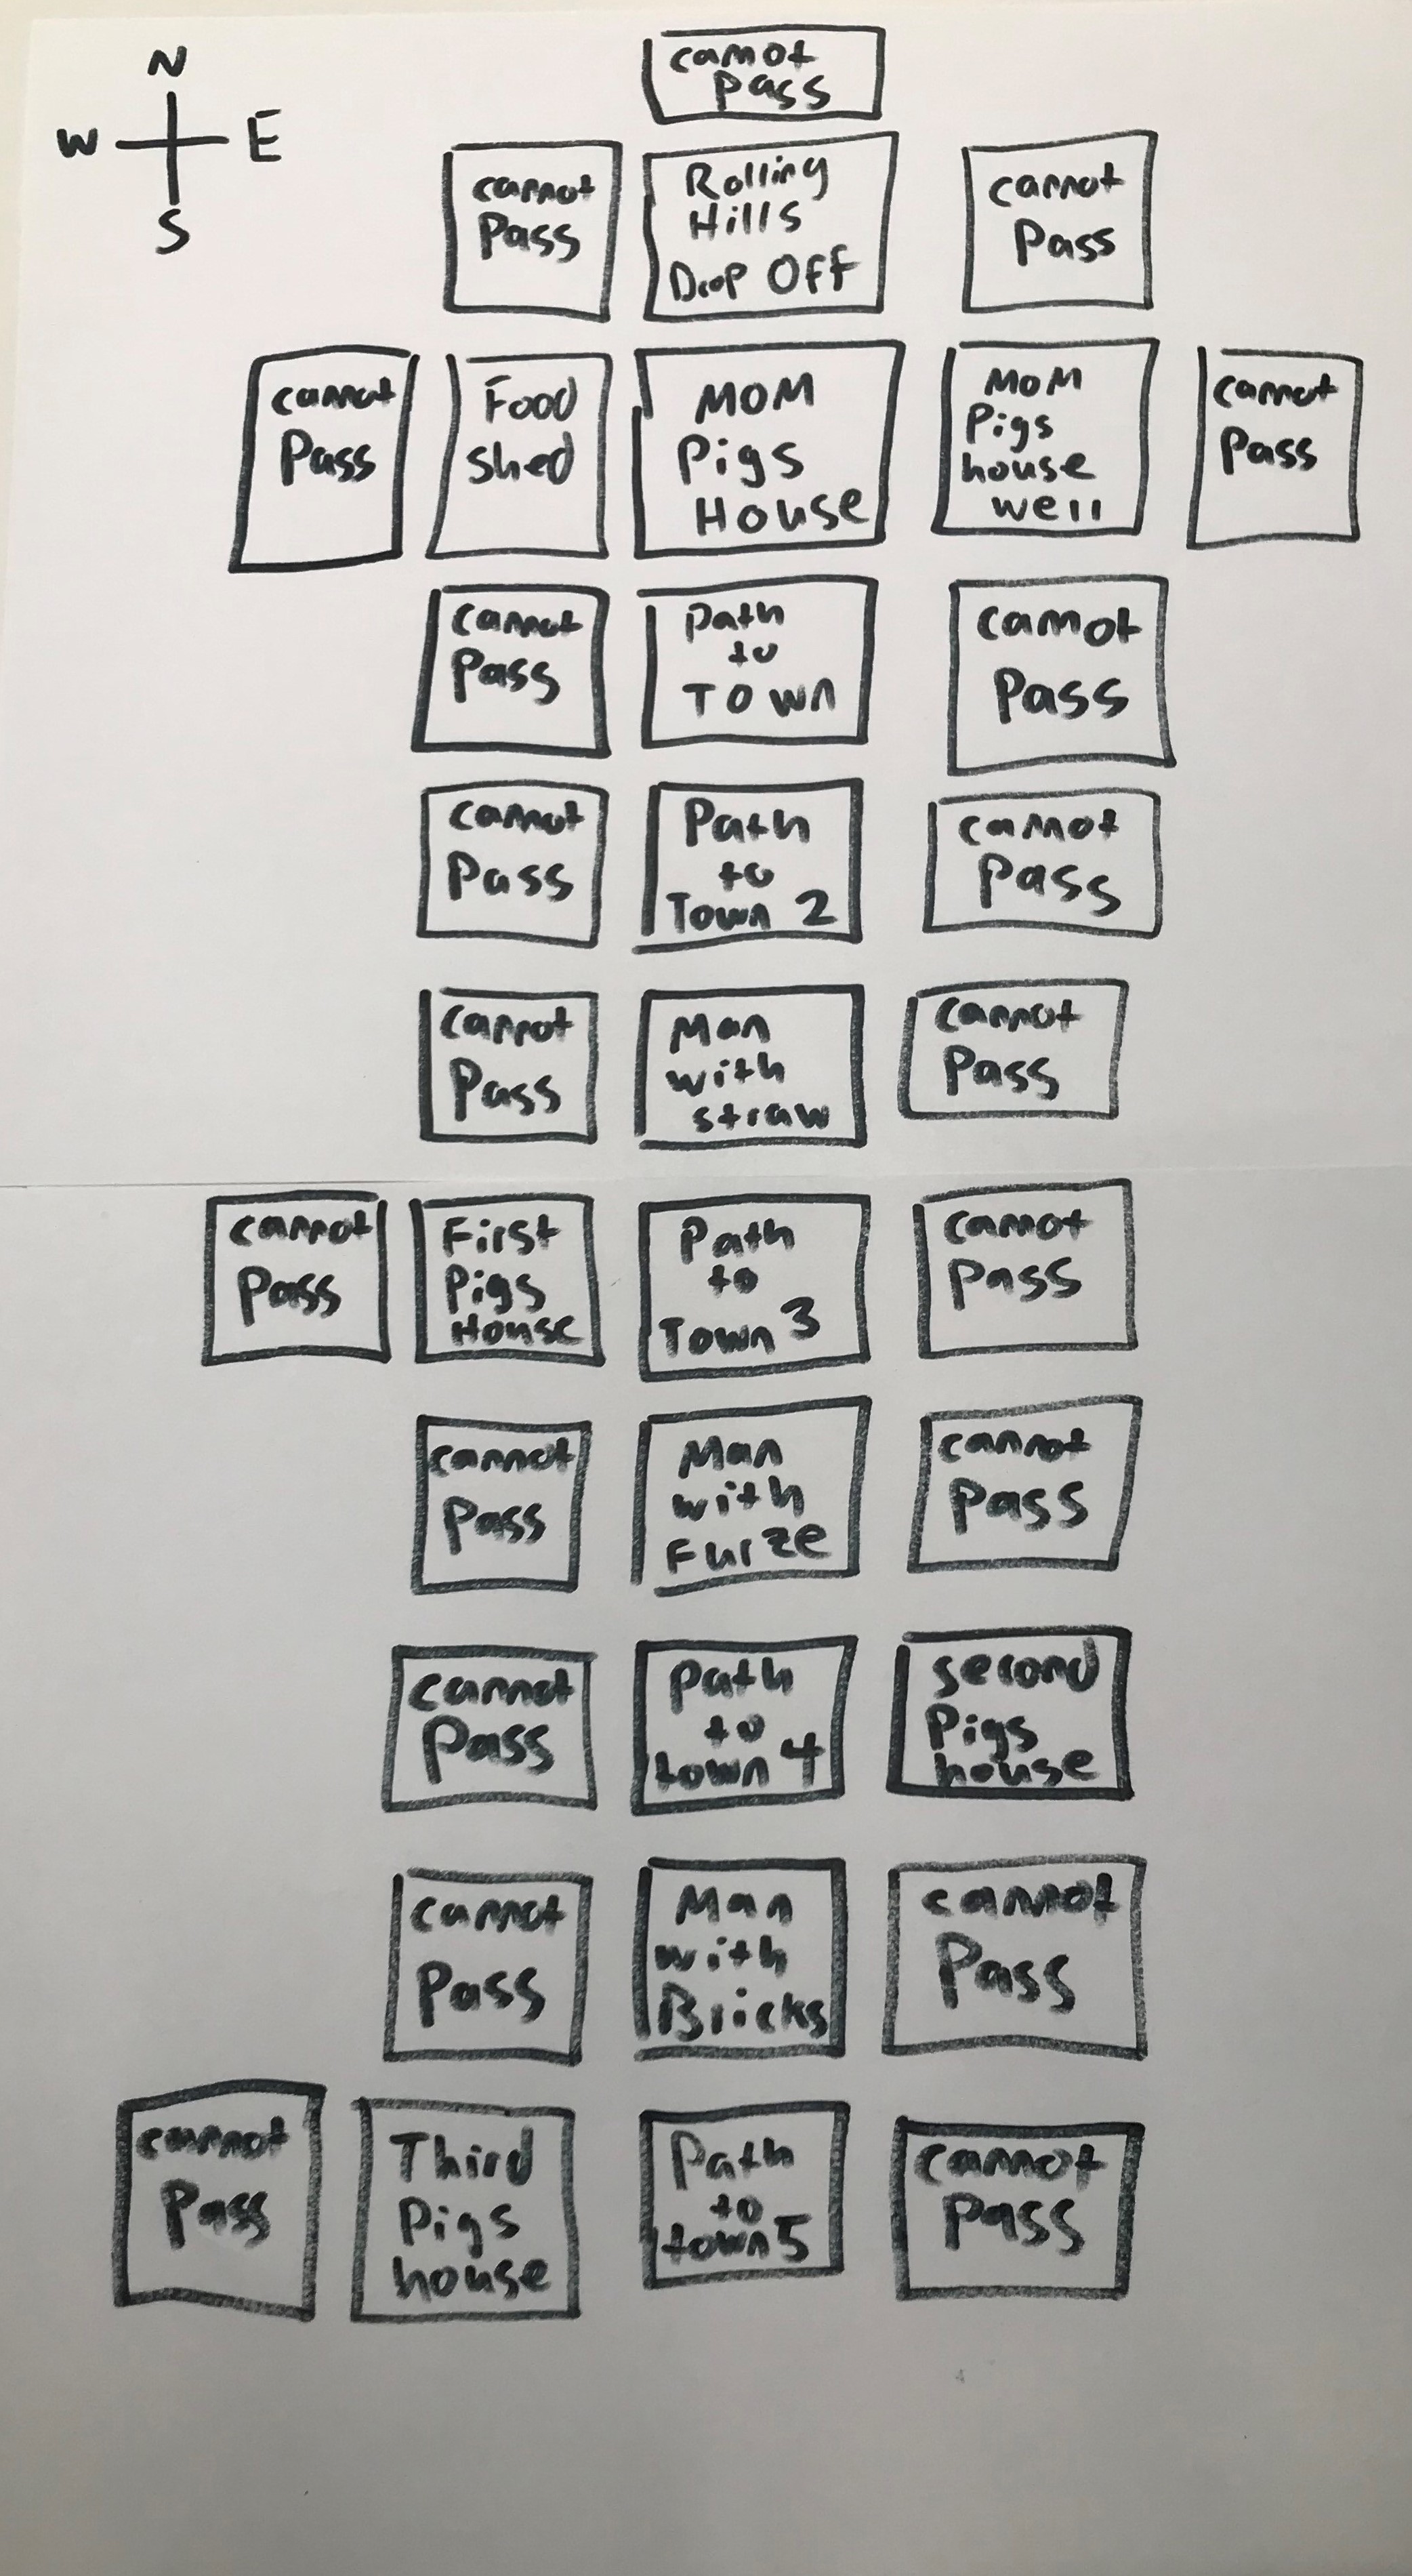 N
W E
S
cannot
pass
cannot
Pass
Rolling
Hills
Drop Off
cannot
Pass
cannot
Pass
Food
shed
MOM
Pigs
House
MOM
Pigs
house
well
cannot
Pass
cannot
Pass
path
to
TOWN
cannot
Pass
cannot
Pass
Path
to
Town 2
cannot
Pass
cannot
Pass
Man
with
straw
cannot
Pass
cannot
Pass
First
Pigs
House
Path
to
Town 3
cannot
Pass
cannot
Pass
Man
with
Furze
cannot
Pass
cannot
Pass
Path
to
town 4
second
Pigs
house
cannot
Pass
Man
with
Bricks
cannot
Pass
cannot
Pass
Third
Pigs
house
Path
to
town 5
cannot
Pass